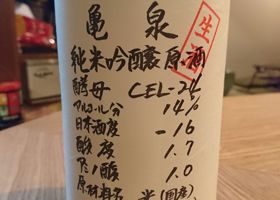 亀泉
純米吟醸原酒
生
酵母 CEL-24
アルコール分 14%
日本酒度 -16
酸度 1.7
アミノ酸 1.0
原材料名 米(国産)